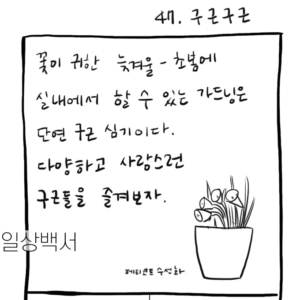 47. 구근구근
꽃이 귀한 늦겨울 - 초봄에
실내에서 할 수 있는 가드닝은
단연 구근 심기이다.
다양하고 사랑스런
구근들을 즐겨보자.
일상백서
페티코트 수선화